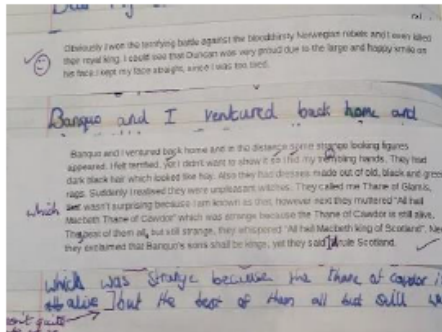 Obviously I won the terrifying battle against the bloodthirsty Norwegian rebels and I even killed
their royal king. I could see that Duncan was very proud due to the large and happy smile on
his face. I kept my face straight, since I was too tired.
Banquo and I ventured back home and
Banquo and I ventured back home and in the distance some strange looking figures
appeared. I felt terrified, yet I didn't want to show it so I hid my trembling hands. They had
dark black hair which looked like hay. Also they had dresses made out of old, black and green
rags. Suddenly I realised they were unpleasant witches. They called me Thane of Glamis,
which wasn't surprising because I am known as that, however next they muttered "All hail
Macbeth Thane of Cawdor" which was strange because the Thane of Cawdor is still alive.
The best of them all, but still strange, they whispered "All hail Macbeth king of Scotland".
they exclaimed that Banquo's sons shall be kings, yet they said rule Scotland.
which was strange because the thane of cawdor
alive but the best of them all but still
quite